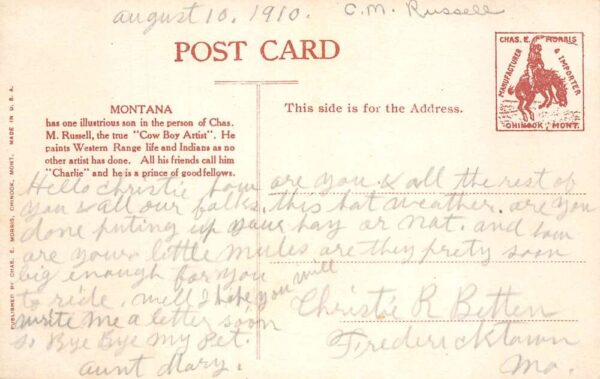 august 10. 1910.
C. M. Russell
POST CARD
CHAS. E. MORRIS
MANUFACTURER
& IMPORTER
CHINOOK, MONT.
MONTANA
has one illustrious son in the person of Chas.
M. Russell, the true "Cow Boy Artist". He
paints Western Range life and Indians as no
other artist has done. All his friends call him
"Charlie" and he is a prince of good fellows.
This side is for the Address.
PUBLISHED BY CHAS. E. MORRIS, CHINOOK, MONT. MADE IN U. S. A.
Hello christie how are you & all the rest of
you & all our folks. this hot weather. are you
done puting up your hay or nat. and how
are your little mules are they pretty soon
big enough for you
to ride. well I hope you will
write me a letter soon
so Bye Bye My Pet.
aunt Mary.
Christie R Betten
Fredericktown
Mo.